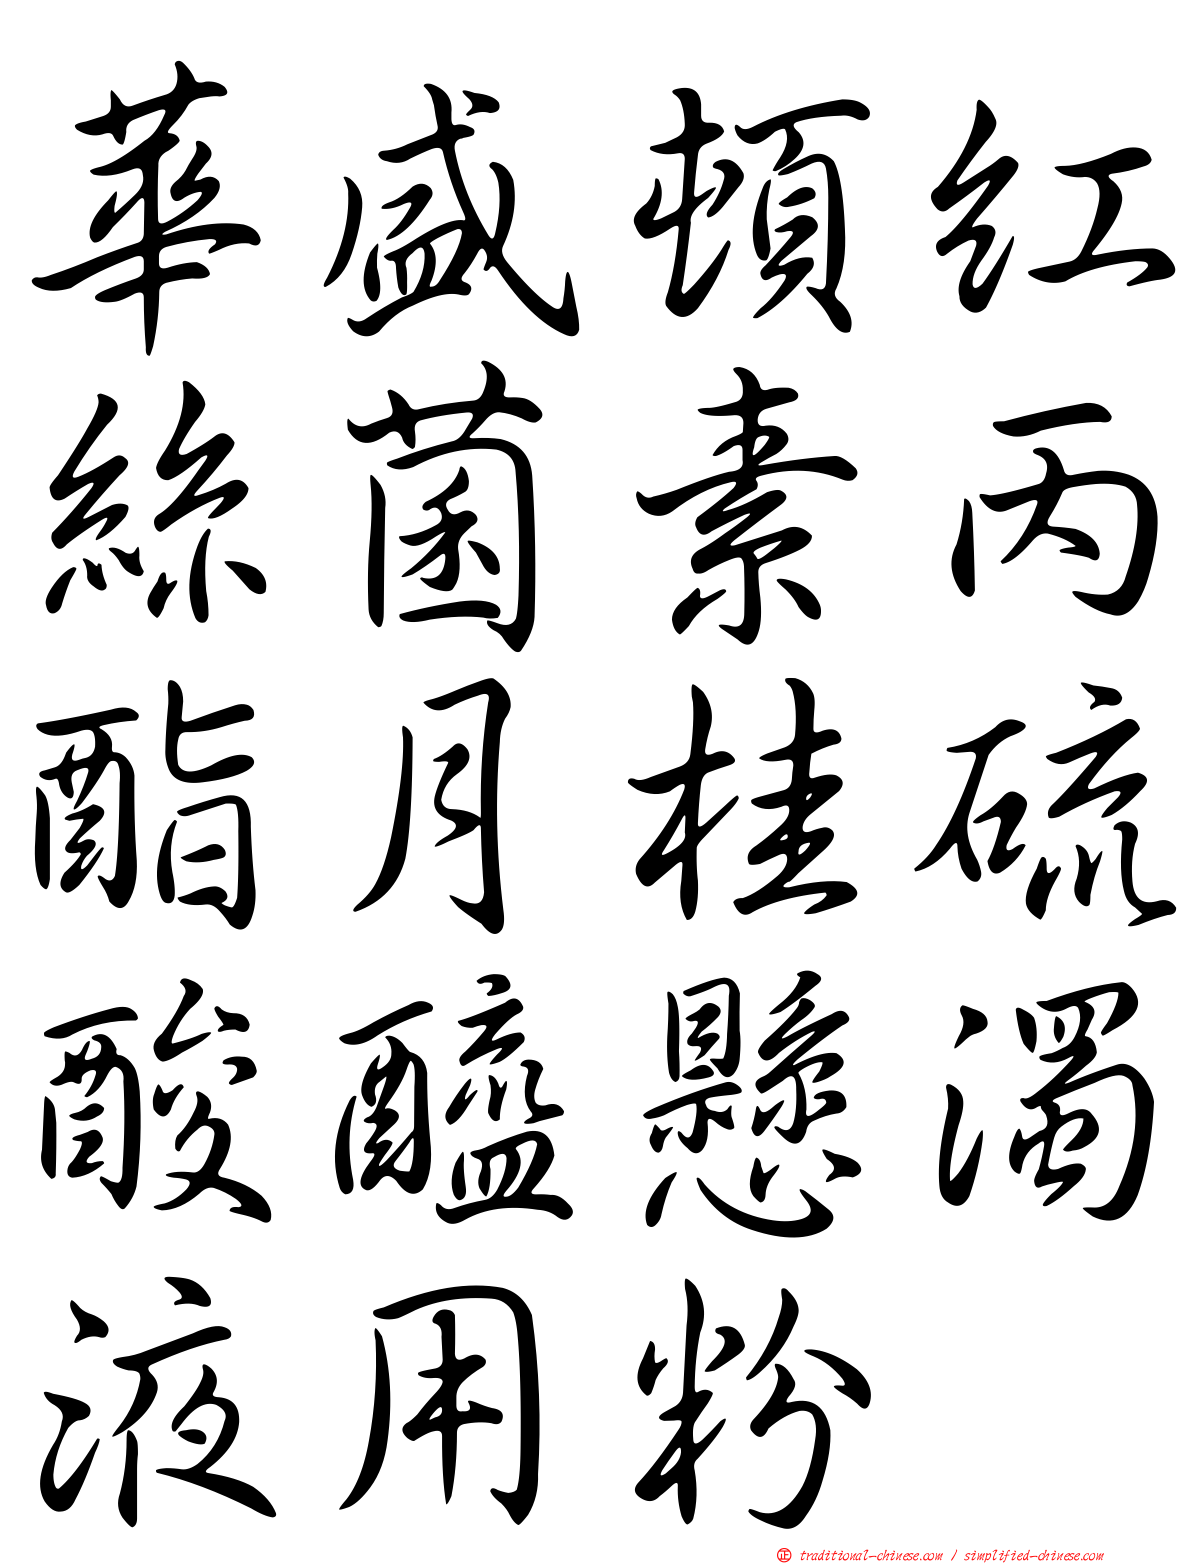 華盛頓紅
絲菌素丙
酯月桂硫
酸醯懸濁
液用粉
正 traditional-chinese.com / simplified-chinese.com